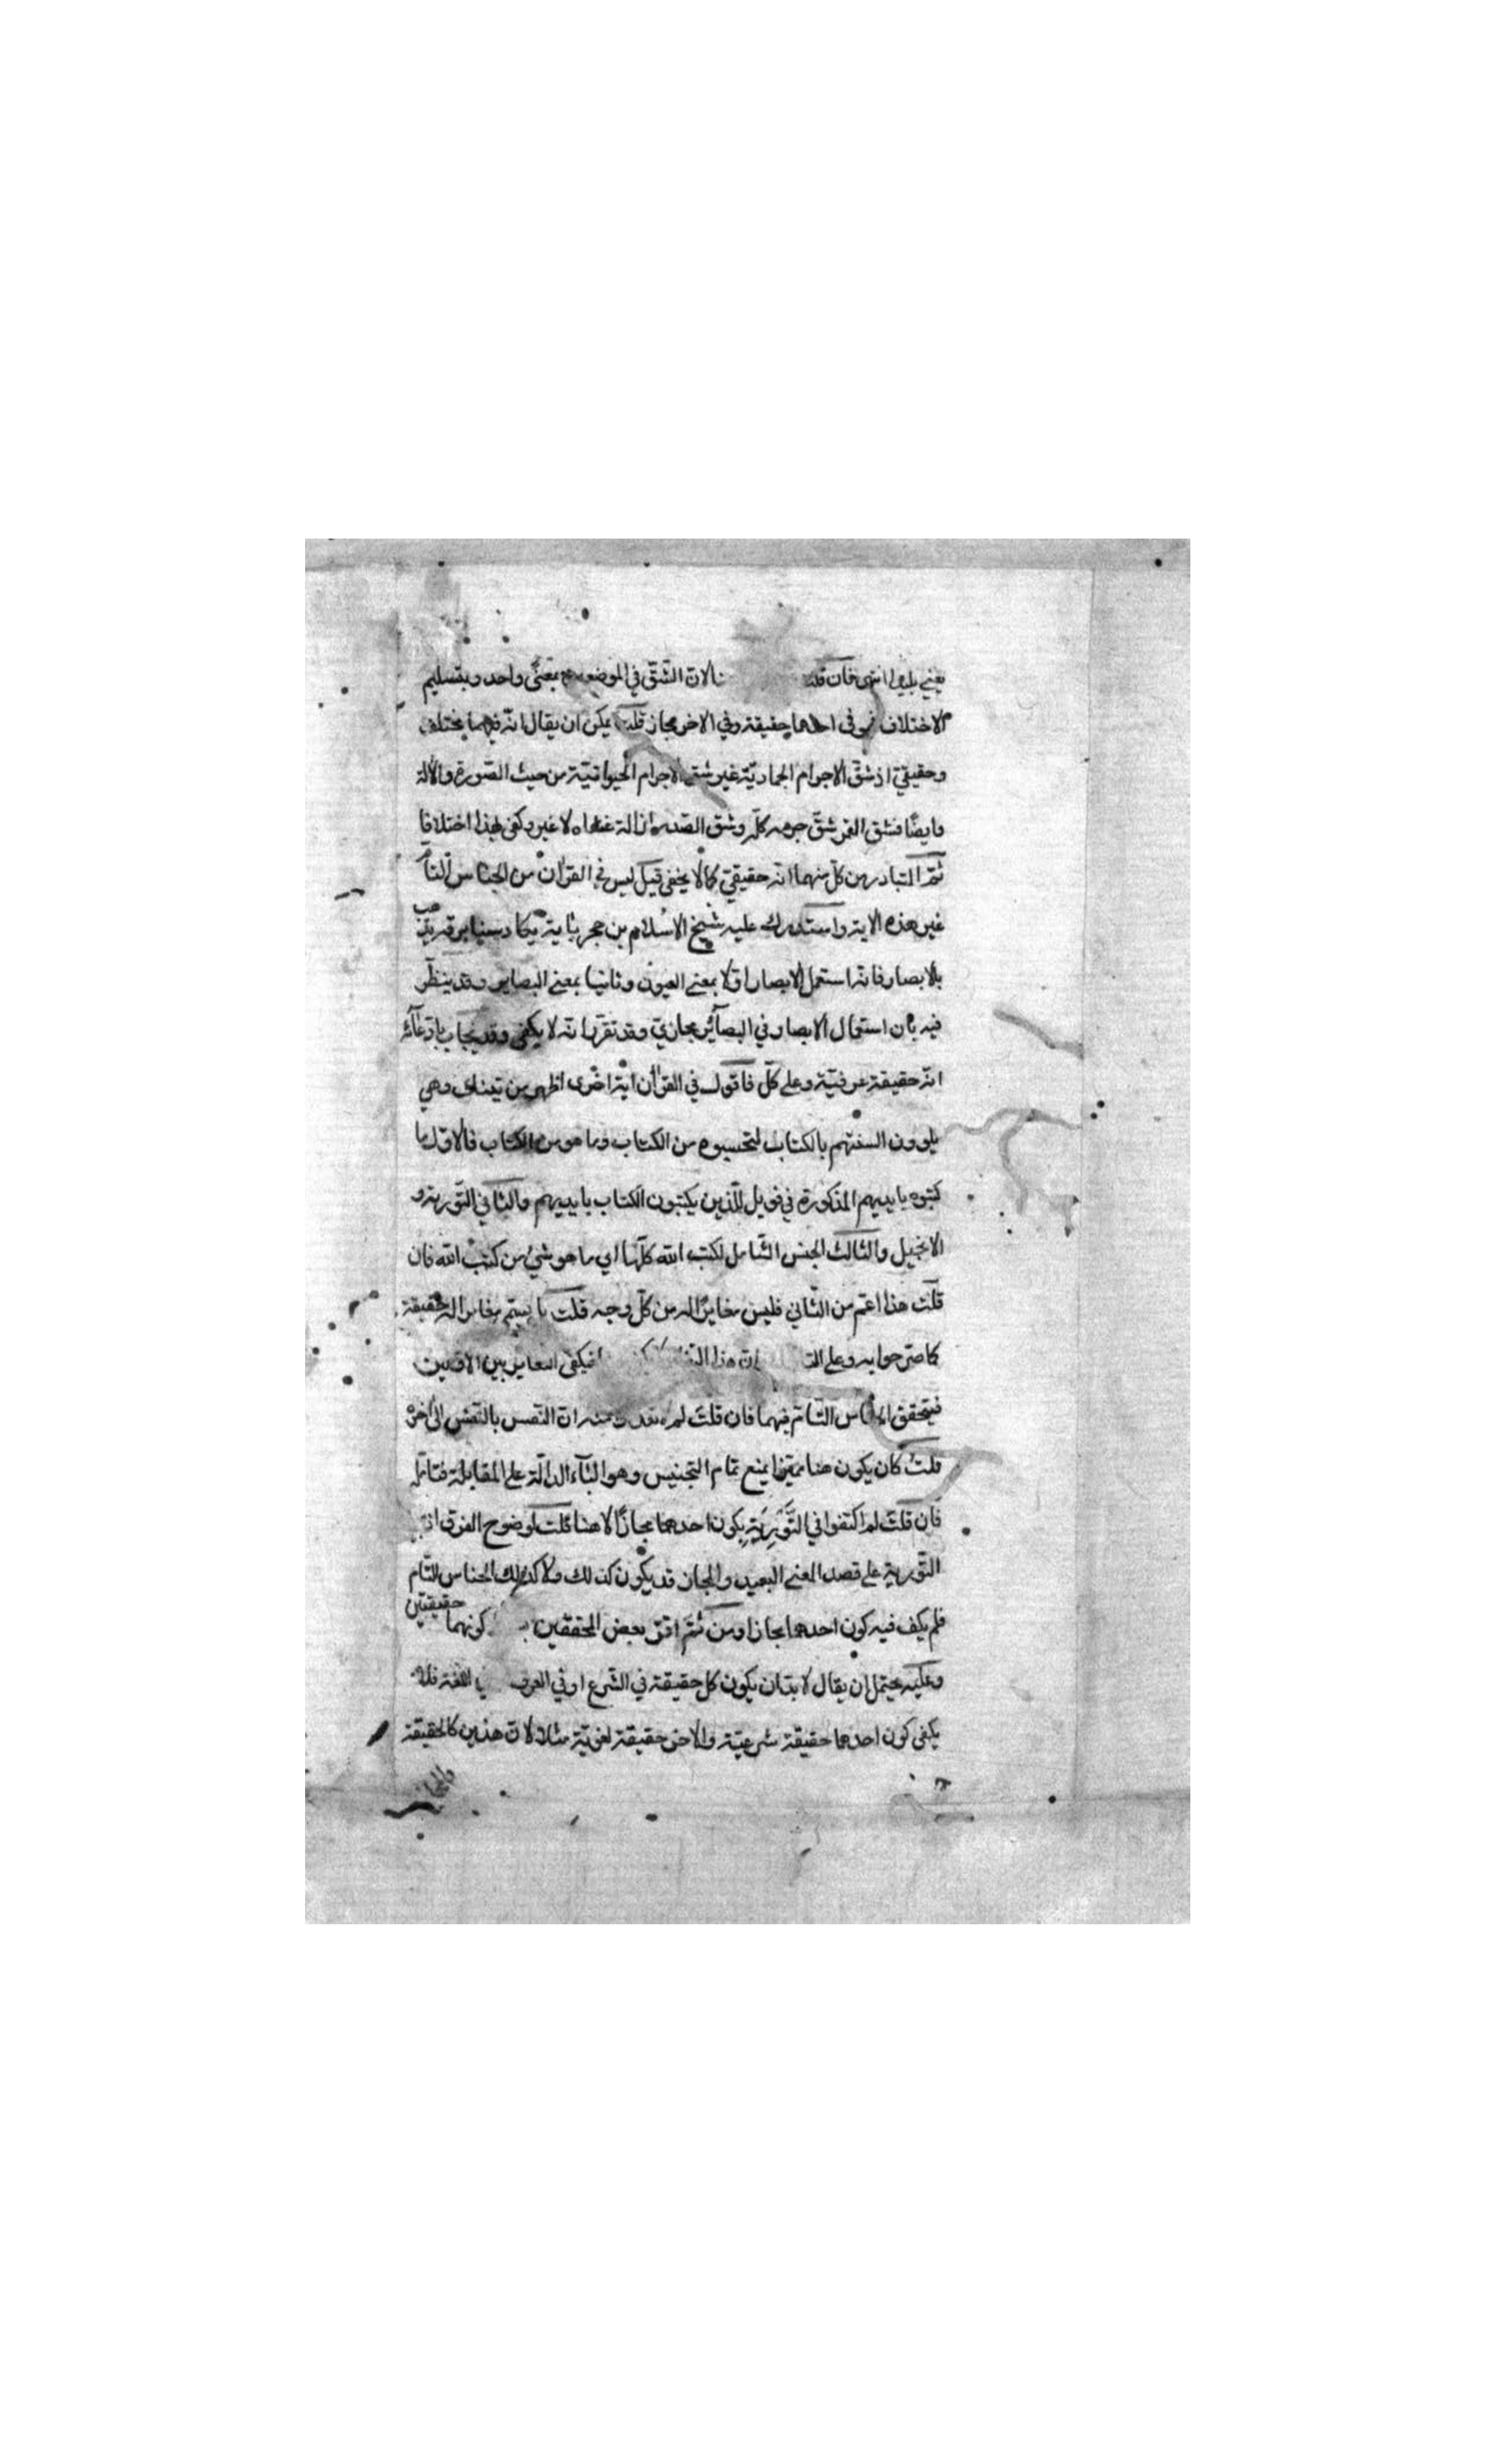 يعني بليغا انتهى فان قلت لان الشّقّ في الموضعين بمعنًى واحد وبتسليم
الاختلاف فهو في احدهما حقيقة وفي الاخر مجاز قلت يمكن ان يقال انّه فيهما مختلف
وحقيقيّ اذ شقّ الاجرام الجماديّة غير شق الاجرام الحيوانيّة من حيث الصّورة والآلة
وايضًا فشق القمر شقّ جرمه كلّه وشق الصّدر ازالة غطاه لا غير وكفى بهذا اختلافا
ثمّ المتبادر من كلّ منهما انّه حقيقيّ كما لا يخفى قيل ليس في القرآن من الجناس التّامّ
غير هذه الاية واستدرك عليه شيخ الاسلام بن حجر باية يكاد سنا برقه يذهب
بالابصار فانّه استعمل الابصار اوّلا بمعنى العيون وثانيا بمعنى البصاير وقد ينظّر
فيه بان استعمال الابصار في البصآئر مجازيّ وقد تقرّر انّه لا يكفى وقد يجاب بادّعآئه
انّه حقيقة عرفيّة وعلى كلّ فاقول في القرآن اية اخرى اظهر من تينك وهي
يلوون السنتهم بالكتاب لتحسبوه من الكتاب وما هو من الكتاب فالاوّل ما
كتبوه بايديهم المذكورة في فويل للّذين يكتبون الكتاب بايديهم والثاني التّورية و
الانجيل والثالث الجنس الشّامل لكتب الله كلّها اي ما هو شيء من كتب الله فان
قلت هذا اعمّ من الثّاني فليس مغايرًا له من كلّ وجه قلت ما يعمّ مغاير له حقيقة
كما صرّحوا به وعلى انّ هذا فيكفى التغاير بين الاوّلين
فيتحقق الجناس التّامّ فيهما فان قلت لم انّ النّفس بالنّفس الى اخره
قلت كان يكون هنا مميّزا يمنع تمام التجنيس وهو البآء الدالّة على المقابلة فتامّله
فان قلت لم اكتفوا في التّورية بكون احدهما مجازًا لا هنا قلت لوضوح الفرق اذ
التّورية على قصد المعنى البعيد والمجاز قد يكون كذلك ولا كذلك الجناس التّام
فلم يكف فيه كون احدهما مجازا ومن ثمّ افتى بعض المحققين كونهما حقيقتين
وعليه يحتمل ان يقال لا بدّ ان يكون كل حقيقة في الشّرع او في العرف اللغة فلا
يكفى كون احدهما حقيقة شرعيّة والاخر حقيقة لغويّة مثلا لانّ هذين كالحقيقة
والمجاز